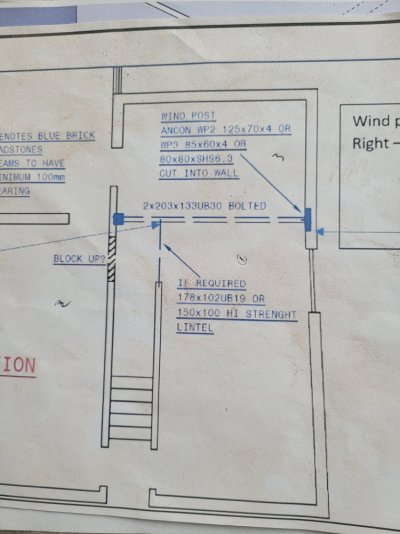 WIND POST
ANCON WP2 125x70x4 OR
WP3 85x60x4 OR
80x80xSHS6.3
CUT INTO WALL
ENOTES BLUE BRICK
ADSTONES
EAMS TO HAVE
INIMUM 100mm
EARING
Wind p
Right –
2x203x133UB30 BOLTED
BLOCK UP?
IF REQUIRED
178x102UB19 OR
150x100 HI STRENGHT
LINTEL
ION